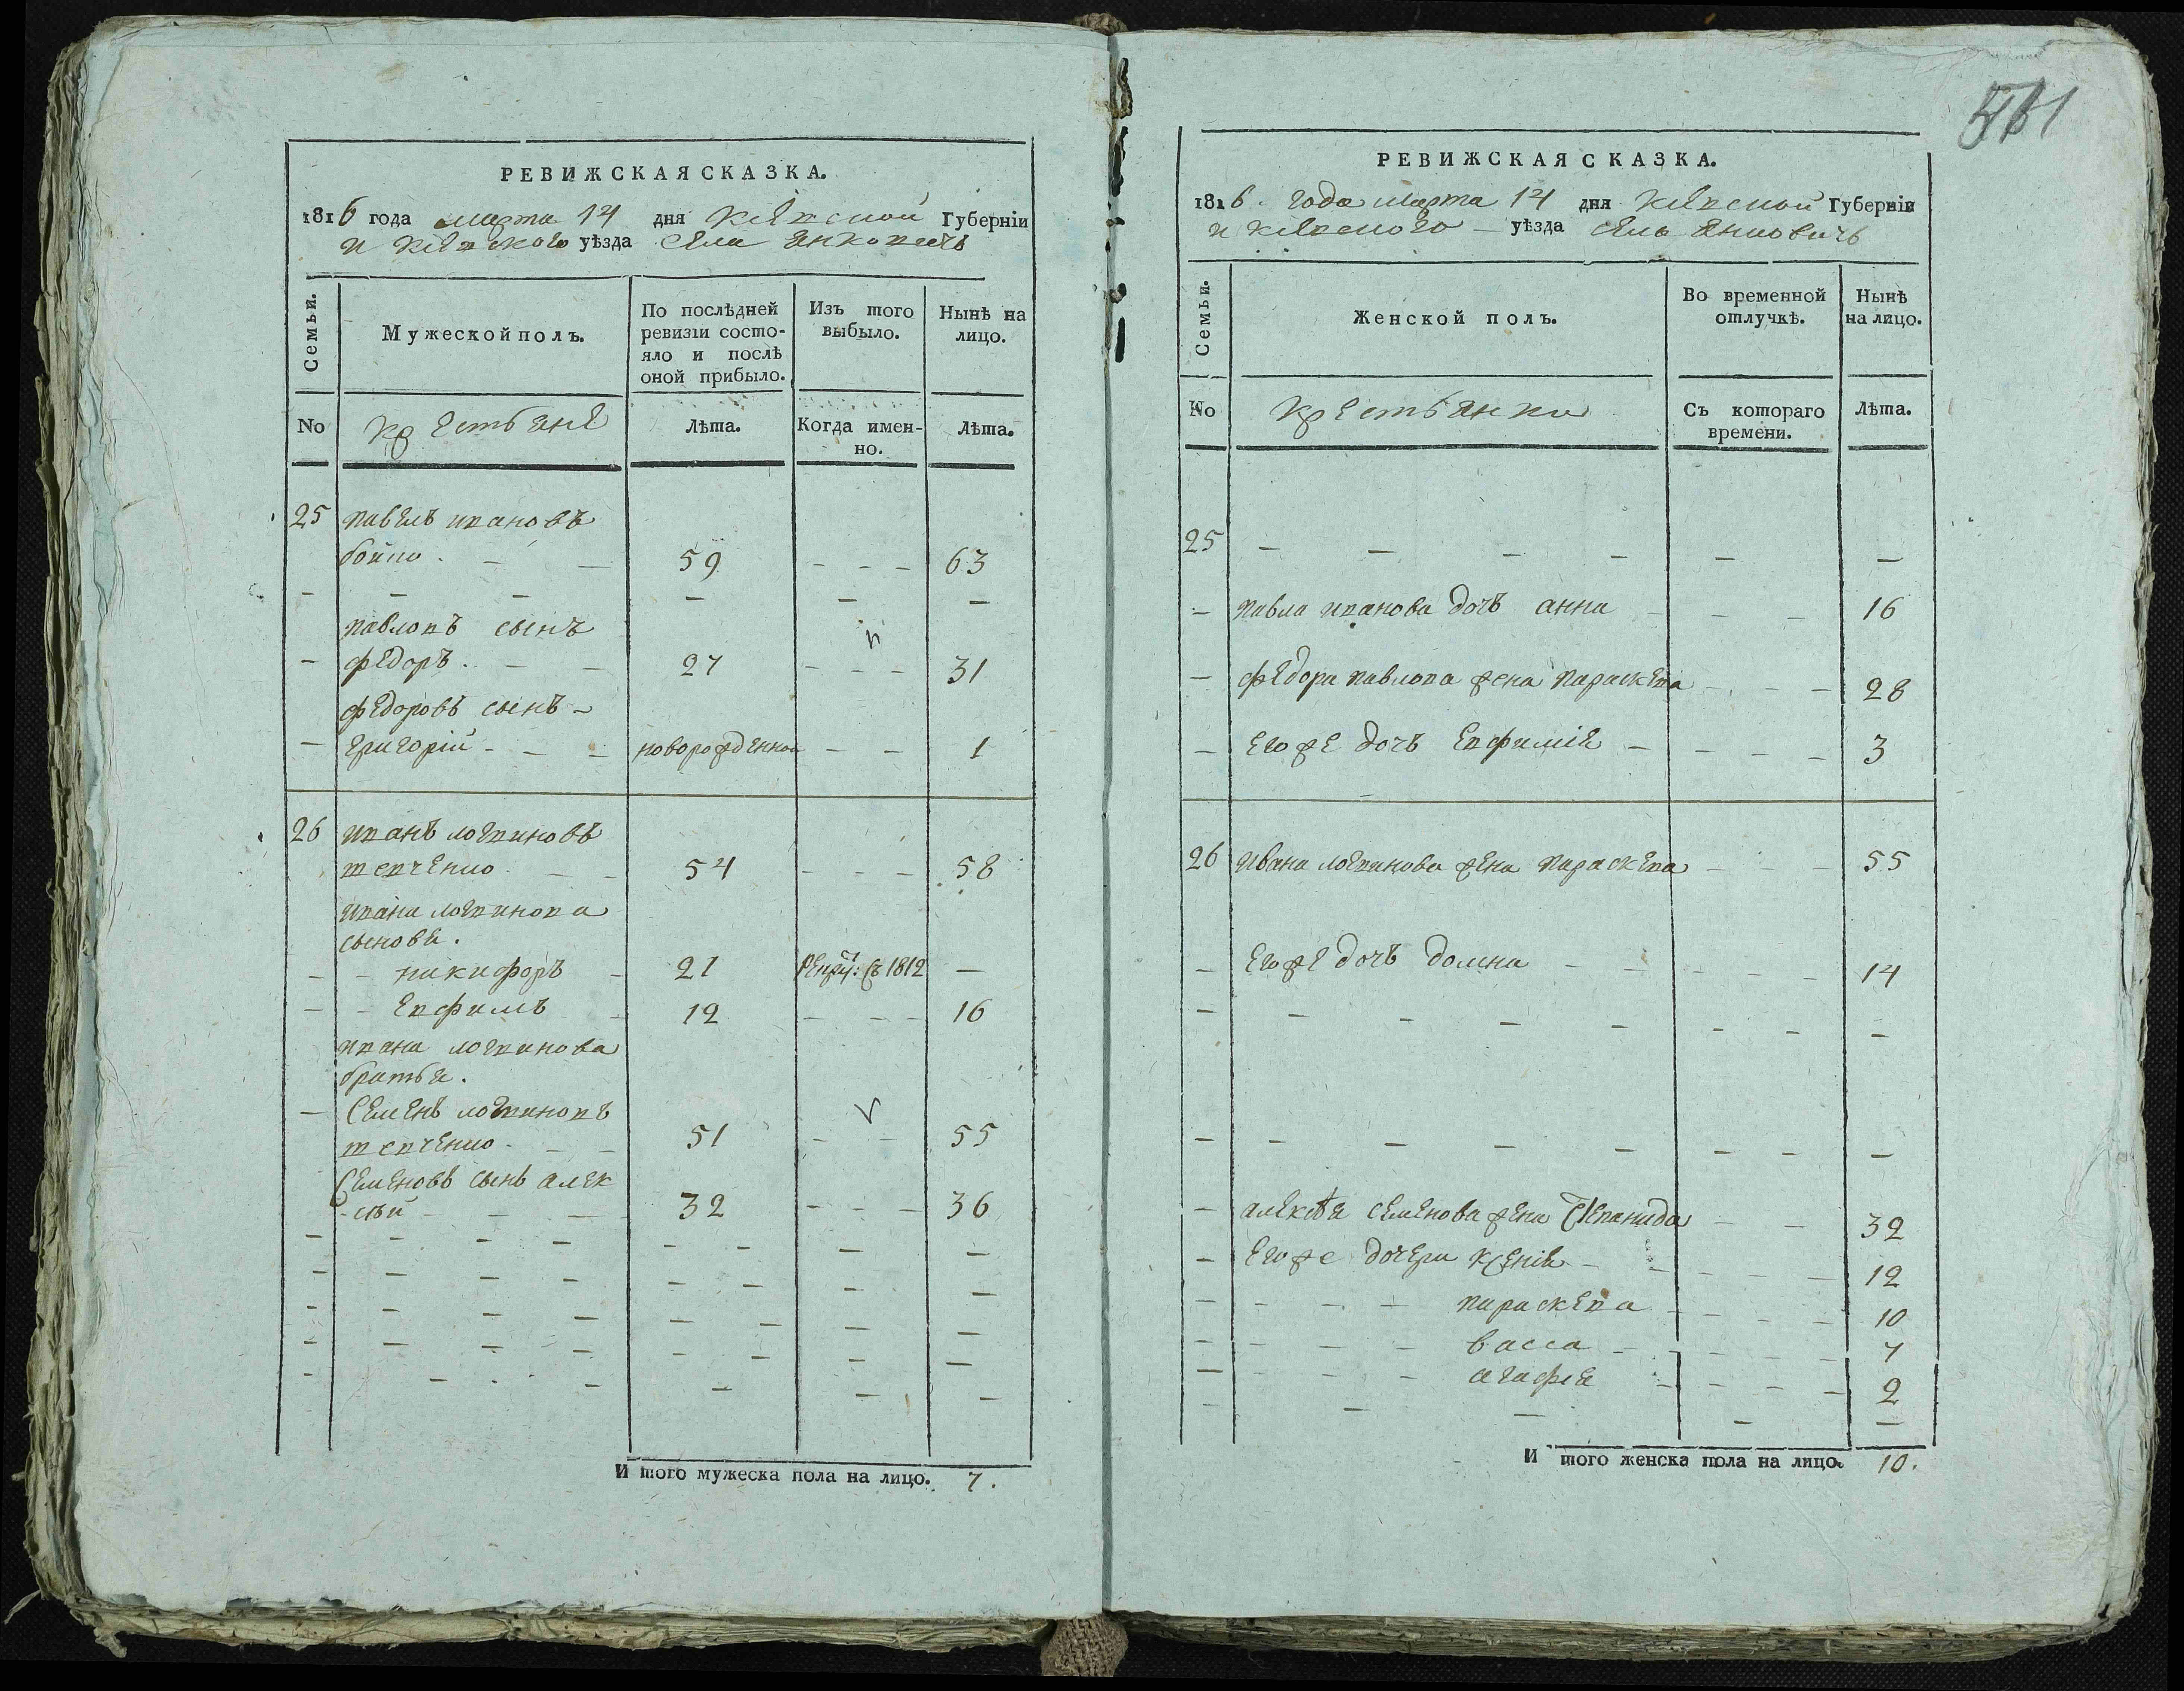 РЕВИЖСКАЯ СКАЗКА.
1816 года марта 14 дня Кіевской Губерніи
и Кіевского уѣзда села Янковичъ
Семьи.
Мужеской полъ.
По послѣдней ревизіи состо-
яло и послѣ
оной прибыло.
Изъ того
выбыло.
Нынѣ на
лицо.
No
крестьяне
Лѣта.
Когда имен-
но.
Лѣта.
25 павелъ ивановъ
бойко 59 63
павловъ сынъ
федоръ 27 31
федоровъ сынъ
григорій новорожденной 1
26 иванъ логвиновъ
тевченко 54 58
ивана логвинова
сыновя.
никифоръ 21 рекру: съ 1812
евфимъ 12 16
ивана логвинова
братья.
семенъ логвиновъ
тевченко 51 55
семеновъ сынъ алек
-сѣй 32 36
И того мужеска пола на лицо. 7.
561
РЕВИЖСКАЯ СКАЗКА.
1816. года марта 14 дня Кіевской Губерніи
и Кіевского уѣзда села Янковичъ
Семьи.
Женской полъ.
Во временной
отлучкѣ.
Нынѣ
на лицо.
No
крестьянки
Съ котораго
времени.
Лѣта.
25
павла иванова дочь анна 16
федора павлова жена параскева 28
его же дочь евфимія 3
26 ивана логвинова жена параскева 55
его же дочь домна 14
алексѣя семенова жена степанида 32
его же дочери ксенія 12
параскева 10
васса 7
агафія 2
И того женска пола на лицо. 10.